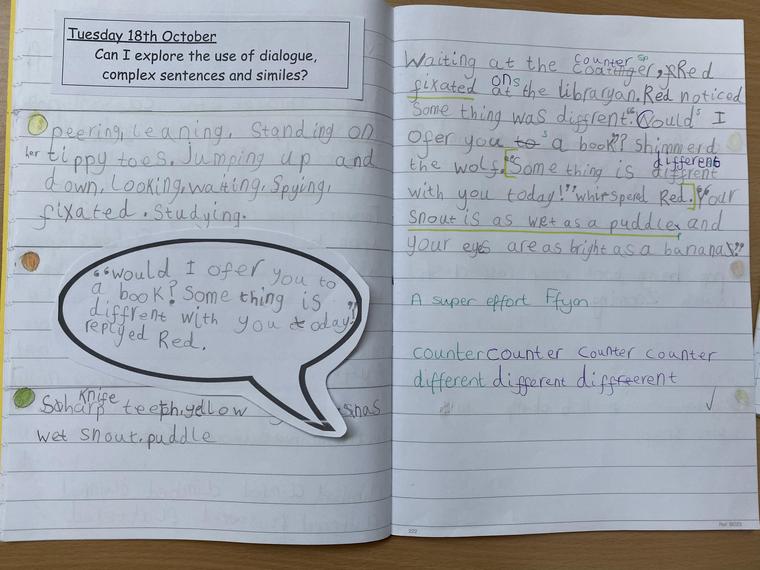 Tuesday 18th October
Can I explore the use of dialogue,
complex sentences and similes?
peering, leaning, standing on
her tippy toes. Jumping up and
down, looking, waiting, spying,
fixated. studying.
"would I ofer you to
a book? Some thing is
diffrent with you today!"
replyed Red.
knife
Sharp teeth. yellow
wet snout. puddle
Waiting at the counter sp, Red
fixated on the libraryan. Red noticed
Some thing was diffrent. "Could I
ofer you to a book"? shimmerd
the wolf. "Some thing is different
with you today!" whirsperd Red. "Your
snout is as wet as a puddle and
your eyes are as bright as a bananas"
A super effort Ffyon
counter counter counter counter
different different different
222